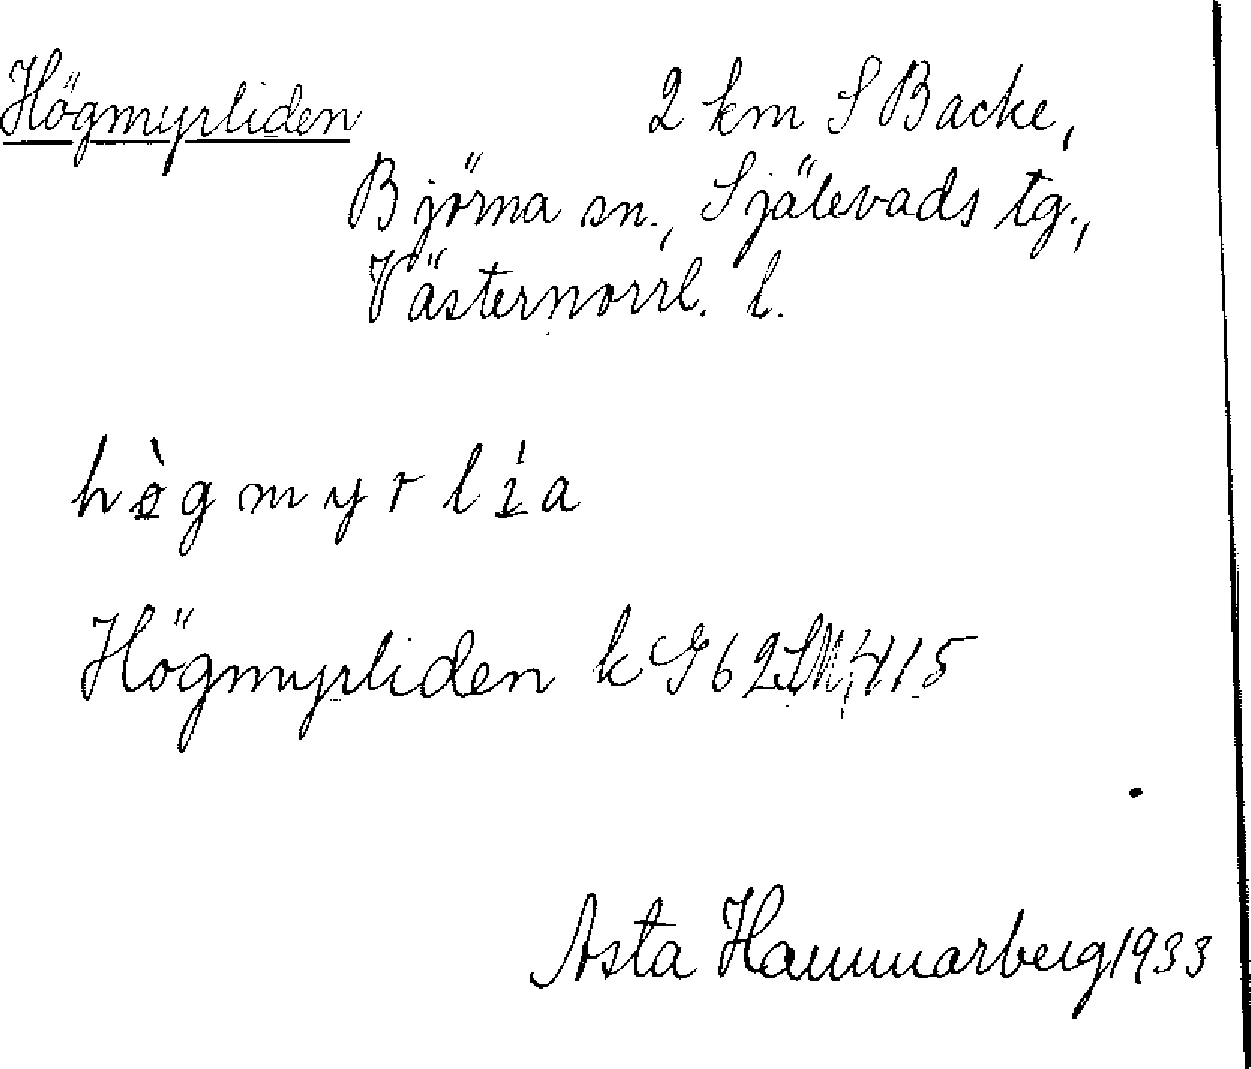 Högmyrliden 2 km S Backe,
Björna sn., Själevads tg.,
Västernorrl. l.
hø̀gmyrlı́a
Högmyrliden k G62SM,415
Asta Hammarberg 1933